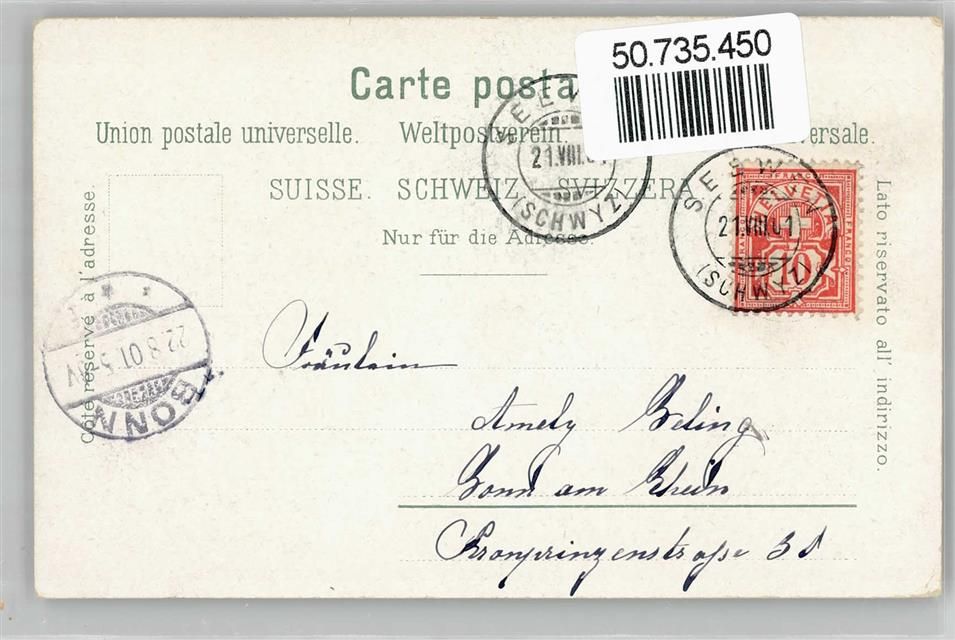 50.735.450
Carte posta
Union postale universelle. Weltpostverein ersale.
SUISSE. SCHWEIZ. SVIZZERA
Nur für die Adresse.
Côté réservé à l'adresse.
Lato riservato all' indirizzo.
SEEW
21.VIII.01
(SCHWYZ)
SEEW
21.VIII.01
(SCHWYZ)
FRANCO
HELVETIA
10
22.8.01.5-
BONN
Fräulein
Amely
Bonn am Rhein
Kronprinzenstraße